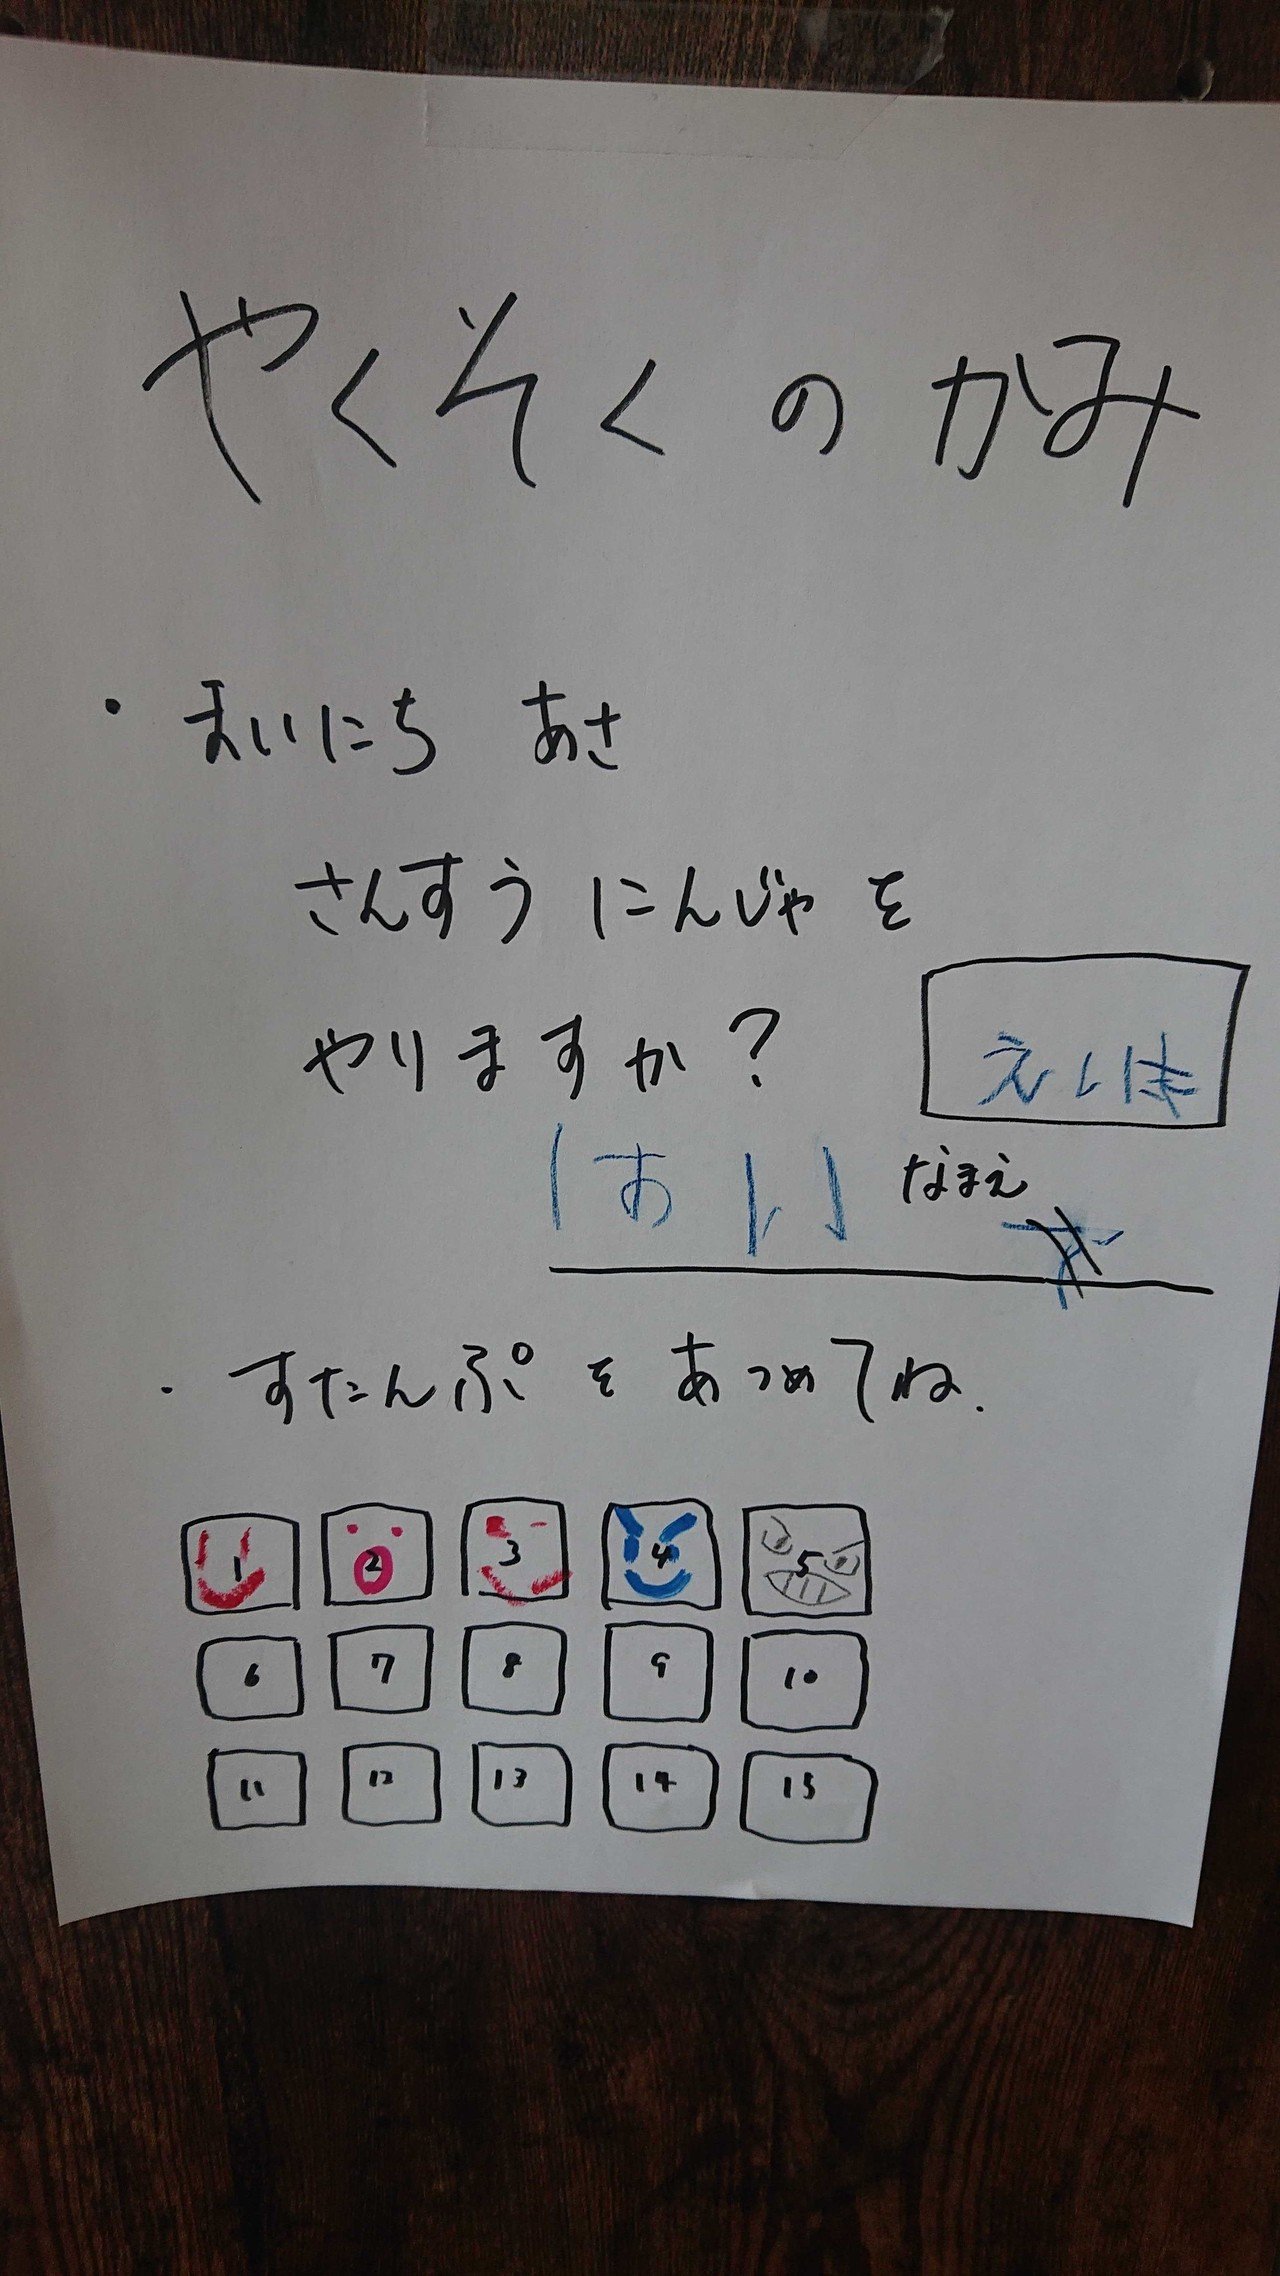 やくそくのかみ
・まいにち あさ
さんすうにんじゃを
やりますか？
はい
なまえ
・すたんぷをあつめてね.
1 2 3 4 5
6 7 8 9 10
11 12 13 14 15